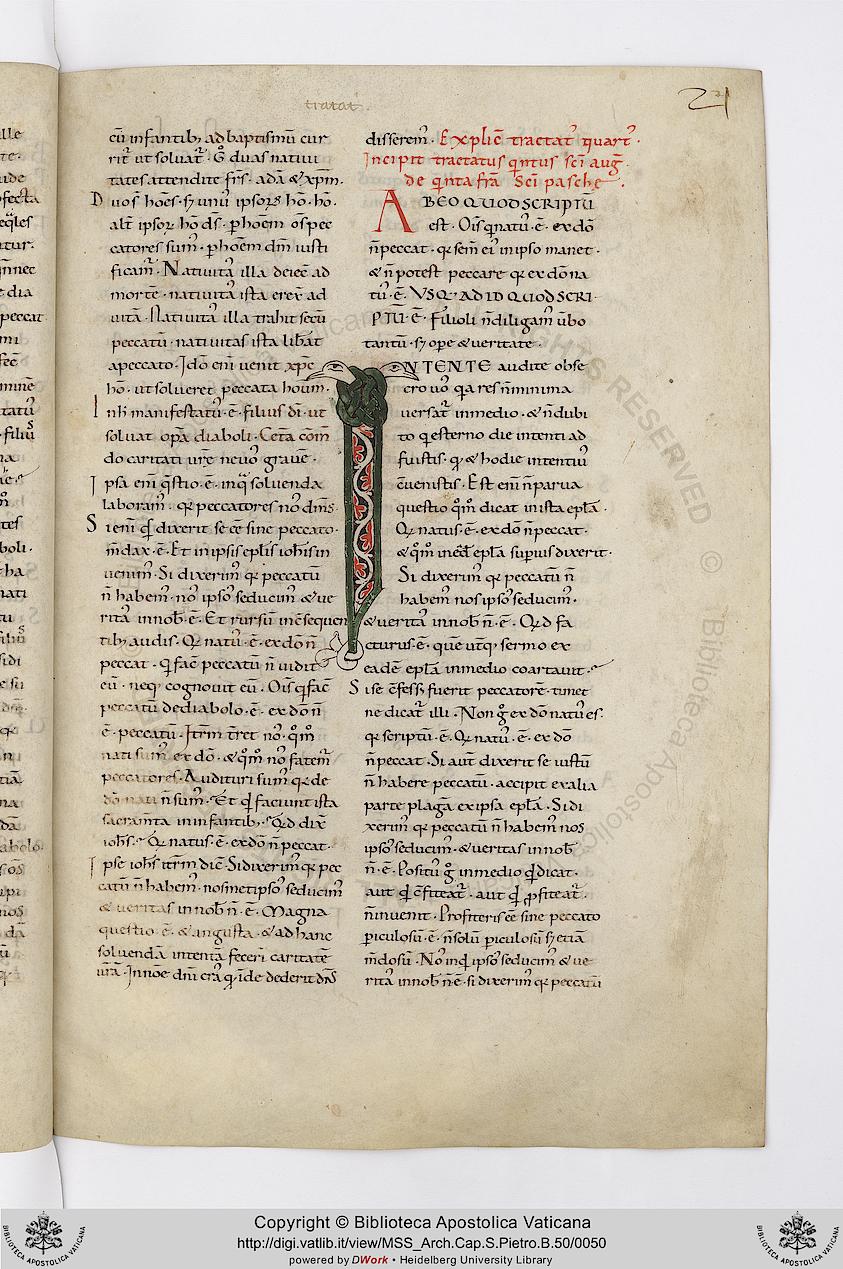 tractat.
21
cū infantib; ad baptismū cur
rit̄ ut solvat̄. G̊ duas nativi
tates attendite fr̄s. adā & xp̄m.
Duos hōes. sʒ unus ipsorʒ hō. hō.
alt̄ ipsorʒ hō d̄s. p hōem om̄s pec
catores sum᷒. p hōem dm̄ iusti
ficam̄. Nativitas illa deiec̄ ad
mortē. nativitas ista erex̄ ad
vitā. Nativitas illa trahit secū
peccatū. nativitas ista lib̄at
a peccato. Ido em̄ venit xp̄c
hō. ut solveret peccata hoīum.
In h̄ manifestatus. ē. filius di. ut
solvat opa diaboli. Ceta com̄
do caritati vrē ne vos grave.
Ipsa em̄ q̄stio. ē. in q̄ solvenda
laboram᷒. qꝛ peccatores nos dim᷒.
Si em̄ q̄s dixerit se eē sine peccato.
m̄dax. ē. Et in ipsis eplis ioh̄is in
venim᷒. Si dixerim᷒ qꝛ peccatū
n̄ habem᷒. nos ipsos seducim᷒ & ve
ritas in nob̄ n̄. ē. Et rursum in ēsequen
tib; audis. Qꝛ natus. ē. ex dō n̄
peccat. q̄ fac̄ peccatū n̄ vidit
eū. neqʒ cognovit eū. Ois̄ q̄ fac̄
peccatū de diabolo. ē. ex dō n̄
ē. peccatū. Itrm̄ t̄ret nos. q̊m᷒
nati sum᷒ ex dō. & q̊m᷒ nos fatem̄
peccatores. Audituri sum᷒ qꝛ de
dō nati n̄ sum᷒. Et q̄ faciunt ista
sacram̄ta in infantib;. Qd̄ dix̄
ioh̄s. Qꝛ natus. ē. ex dō n̄ peccat.
Ipse ioh̄s itrm̄ dic̄. Si dixerim᷒ qꝛ pec
catū n̄ habem᷒. nosmetipsos seducim᷒
& veritas in nob̄ n̄. ē. Magna
questio. ē. & angusta. & ad hanc
solvendā intentā fecerī caritatē
vr̄ā. In noē dn̄i cras q̄ īde dederit dn̄s
disserem᷒. Explic̄ tractat᷒ quart᷒.
Incipit tractatus q̄ntus sc̄i auḡ.
de q̄nta fr̄ā Sc̄i pasche.
AB EO QUOD SCRIPTŪ
est. Ois̄ q̄ natus. ē. ex dō
n̄ peccat. qꝛ sem̄ ei᷒ in ipso manet.
& n̄ potest peccare qꝛ ex dō na
tus. ē. VSQ᷒ AD ID QUOD SCRI
PTŪ. Ē. Filioli n̄ diligam᷒ v̄bo
tantū. sʒ ope & veritate.
INTENTE audite obse
cro vos qa res n̄ minima
versat̄ in medio. & n̄ dubi
to q̄ esterno die intenti ad
fuistis. qꝛ & hodie intentius
c̄venistis. Est em̄ n̄ parva
questio q̊m᷒ dicat in ista epl̄a.
Qꝛ natus. ē. ex dō n̄ peccat.
& q̊m᷒ in eād̄ epl̄a superius dixerit.
Si dixerim᷒ qꝛ peccatū n̄
habem᷒ nos ipsos seducim᷒.
& veritas in nob̄ n̄. ē. Qd̄ fa
cturus. ē. quē utqʒ sermo ex
eadē epl̄a in medio coartavit.
Si se c̄fess᷒ fuerit peccatorē. timet
ne dicat̄ illi. Non g̊ ex dō natus es.
qꝛ scriptū. ē. Qꝛ natus. ē. ex dō
n̄ peccat. Si aut̄ dixerit se iustū
n̄ habere peccatū. accipit ex alia
parte plagā ex ipsa epl̄a. Si di
xerim᷒ qꝛ peccatū n̄ habem᷒ nos
ipsos seducim᷒. & veritas in nob̄
n̄. ē. Positus g̊ in medio q̄d dicat.
aut q̄d c̄fiteat̄. aut q̄d pfiteat̄.
n̄ invenit. Profiteri se eē sine peccato
periculosū. ē. n̄ solū periculosū sʒ etiā
m̄dosū. Nos inq̄d ipsos seducim᷒ & ve
ritas in nob̄ n̄. ē. si dixerim᷒ qꝛ peccatū
RIGHTS RESERVED
© Biblioteca Apostolica Vaticana
Copyright © Biblioteca Apostolica Vaticana
http://digi.vatlib.it/view/MSS_Arch.Cap.S.Pietro.B.50/0050
powered by DWork • Heidelberg University Library
BIBLIOTECA APOSTOLICA VATICANA
BIBLIOTECA APOSTOLICA VATICANA